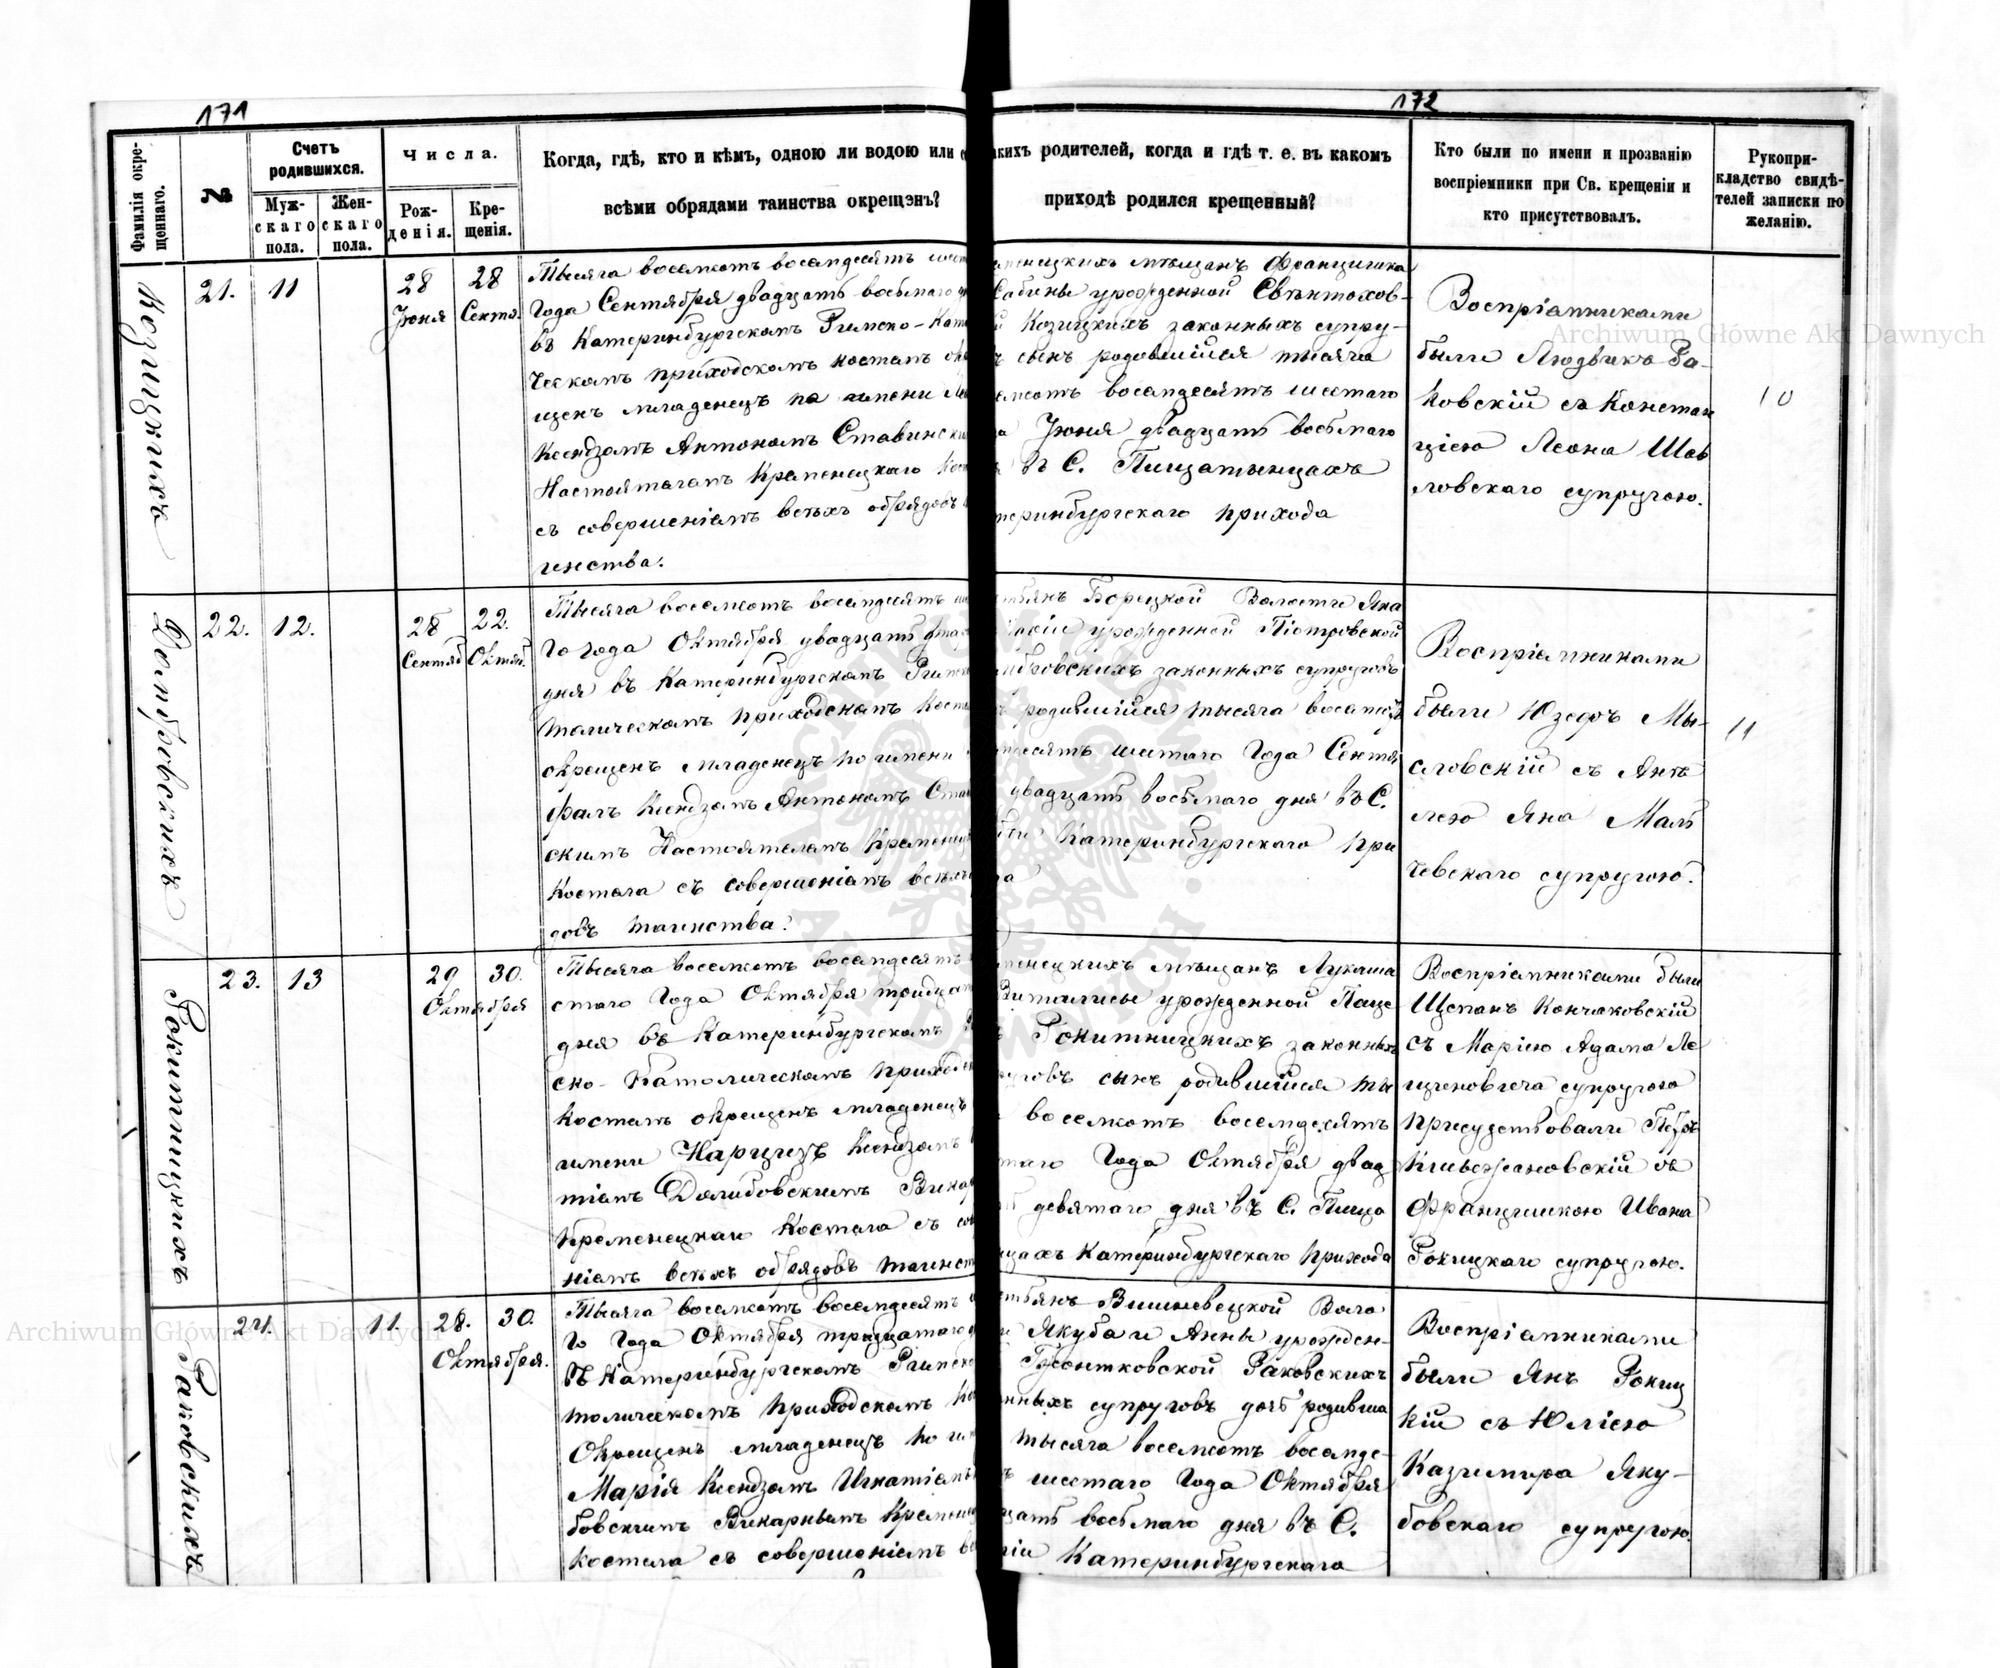 171
172
Фамилія окрещеннаго.
№
Счетъ родившихся.
Мужскаго пола.
Женскаго пола.
Числа.
Рожденія.
Крещенія.
Когда, гдѣ, кто и кѣмъ, одною ли водою или со
всѣми обрядами таинства окрещэнъ?
акихъ родителей, когда и гдѣ т. е. въ какомъ
приходѣ родился крещенный?
Кто были по имени и прозванію
воспріемники при Св. крещеніи и
кто присутствовалъ.
Рукопри-
кладство свидѣ-
телей записки по
желанію.
Козицкихъ
21.
11
28
Іюня
28
Сентя.
Тысяча восемьсотъ восемдесятъ шест
Года Сентября двадцать восьмаго
въ Катеринбургскомъ Римско-Кат
ческомъ приходскомъ костелѣ ок
щенъ младенецъ по имени
Ксендзомъ Антономъ Ставинск
Настоятелемъ Кременецкаго Кос
съ совершеніемъ всѣхъ обрядовъ
инства.
менецкихъ мѣщанъ Францишка
Сабины урожденной Свѣнтохов-
й Козицкихъ законныхъ супру-
ъ сынъ родившійся тысяча
емсотъ восемдесятъ шестаго
а Іюня двадцать восьмаго
въ С. Пищатынцахъ
теринбургскаго прихода
Воспріемниками
были Людвикъ Ра-
ковскій съ Констан
ціею Леона Шав
ловскаго супругою.
10
Домбровскихъ
22.
12.
28
Сентяб
22.
Октяб.
Тысяча восемсотъ восемдесятъ ше
го года Октября двадцать втор
дня въ Катеринбургскомъ Римск
толическомъ приходскомъ Кост
окрещенъ младенецъ по имени
фалъ Ксендзомъ Антономъ Став
скимъ Настоятелемъ Кременецк
Костела съ совершеніемъ всѣхъ
довъ таинства.
стьянъ Борецкой Волости Яна
урожденной Піотровской
мбровскихъ законныхъ супруговъ
ъ родившійся тысяча восемсотъ
мдесятъ шестаго Года Сентя
двадцать восьмаго дня въ С.
Катеринбургскаго при
да
Воспріемниками
были Юзефъ Мы-
словскій съ Анѣ
лею Яна Маль
чевскаго супругою.
11
Рокитницкихъ
23.
13
29
30.
Октября
Тысяча восемсотъ восемдесятъ
стаго Года Октября тридцат
дня въ Катеринбургскомъ Ри
ско-Католическомъ приходск
Костелѣ окрещенъ младенецъ
имени Нарцизъ Ксендзомъ
тіемъ Долибовскимъ Викар
Кременецкаго Костела съ со
ніемъ всѣхъ обрядовъ таинст
менецкихъ мѣщанъ Лукаша
урожденной Паце
Рокитницкихъ законныхъ
уговъ сынъ родившійся ты
восемсотъ восемдесятъ
таго Года Октября двад
девятаго дня въ С. Пища
цахъ Катеринбургскаго прихода
Воспріемниками были
Щепанъ Кончаковскій
съ Маріею Адама Ле
щеновича супругою
присудствовали
съ
Францишкою Ивана
Рокицкаго супругою.
Раковскихъ
24.
11.
28.
30.
Октября.
Тысяча восемсотъ восемдесятъ
го Года Октября тридцатаго д
въ Катеринбургскомъ Римско
толическомъ приходскомъ Ко
Окрещенъ младенецъ по им
Марія Ксендзомъ Игнатіемъ
бовскимъ Викарнымъ Кременец
костела съ совершеніемъ вс
стьянъ Вишневецкой Воло
и Якуба и Анны урожден-
Раковскихъ
нныхъ супруговъ дочь родивша
тысяча восемсотъ восемде-
ъ шестаго Года Октября
цать восьмаго дня въ С.
Катеринбургскаго
Воспріемниками
были Янъ Рокиц
кій съ Юліею
Казимира Яку-
бовскаго супругою.
Archiwum Główne Akt Dawnych
Archiwum Główne Akt Dawnych
ARCHIWUM GŁÓWNE AKT DAWNYCH